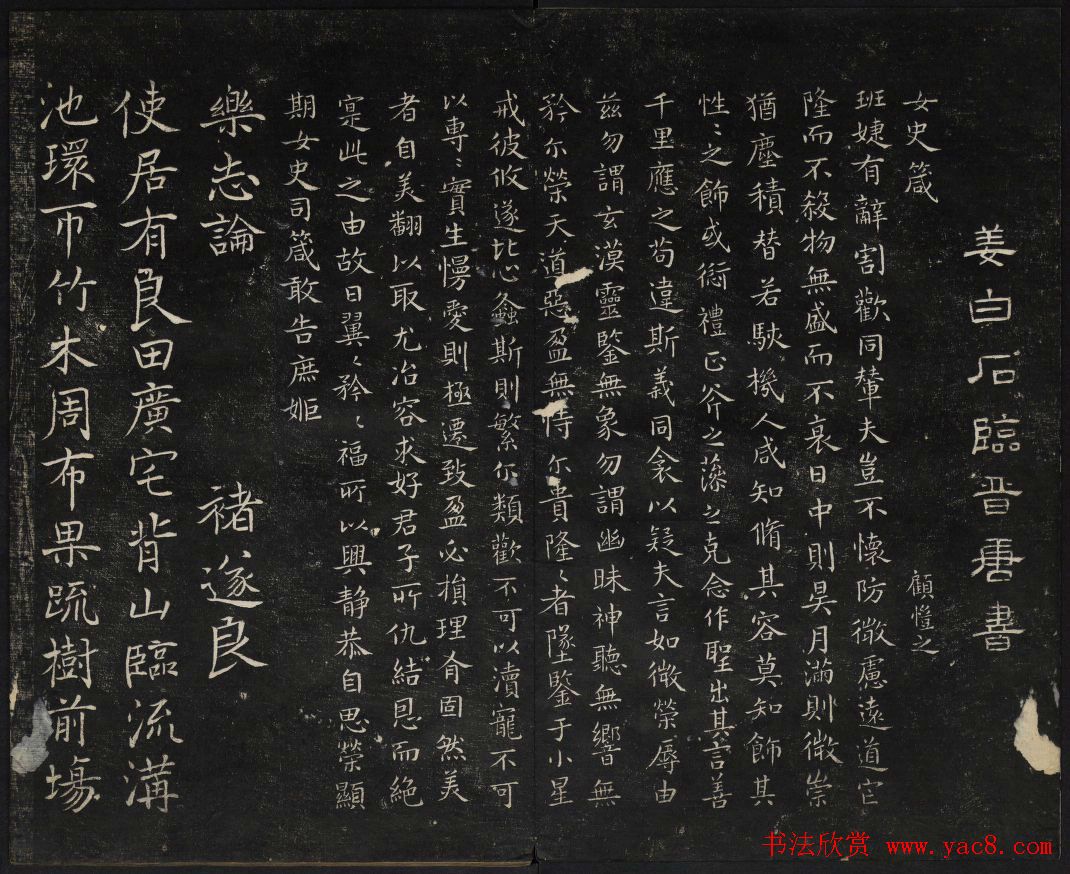 姜白石臨晋唐書
女史箴 顧愷之
班婕有辭割歡同輦夫豈不懷防微慮遠道宦
隆而不殺物無盛而不衰日中則昃月滿則微崇
猶塵積替若駭機人咸知脩其容莫知飾其
性〻之飾或愆禮正斧之藻之克念作聖出其言善
千里應之苟違斯義同衾以疑夫言如微榮辱由
茲勿謂玄漠靈鑒無象勿謂幽昧神聽無響無
矜尒榮天道惡盈無恃尒貴隆〻者墜鑒于小星
戒彼攸遂比心螽斯則繁尒類歡不可以瀆寵不可
以專〻實生慢愛則極遷致盈必損理有固然美
者自美翻以取尤冶容求好君子所仇結恩而絕
寔此之由故曰翼〻矜〻福所以興静恭自思榮顯
期女史司箴敢告庶姬
樂志論 褚遂良
使居有良田廣宅背山臨流溝
池環帀竹木周布果蔬樹前場
书法欣赏 www.yac8.com